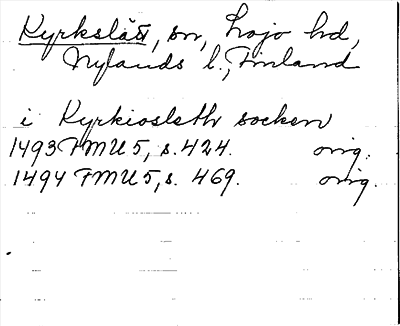 Kyrkslätt, sn, Lojo hd,
Nylands l., Finland
i Kyrkioslsth socken
1493 FMU 5, s. 424. orig.
1494 FMU 5, s. 469. orig.